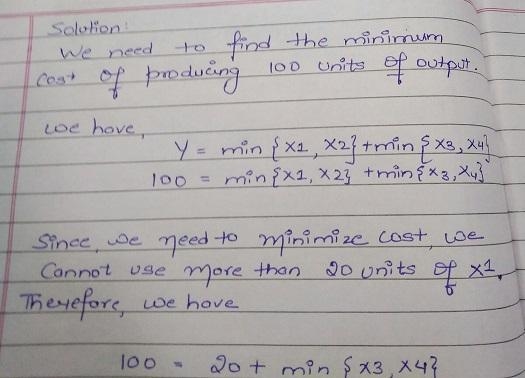 Solution:
We need to find the minimum
cost of producing 100 units of output.
We have,
Y = min {x1, x2} + min {x3, x4}
100 = min {x1, x2} + min {x3, x4}
Since, we need to minimize cost, we
Cannot use more than 20 units of x1.
Therefore, we have
100 = 20 + min {x3, x4}